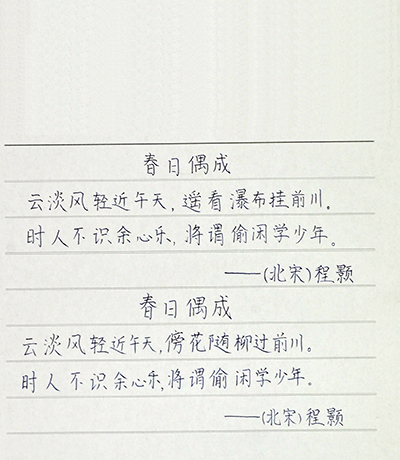 春日偶成
云淡风轻近午天,遥看瀑布挂前川。
时人不识余心乐,将谓偷闲学少年。
——(北宋)程颢
春日偶成
云淡风轻近午天,傍花随柳过前川。
时人不识余心乐,将谓偷闲学少年。
——(北宋)程颢